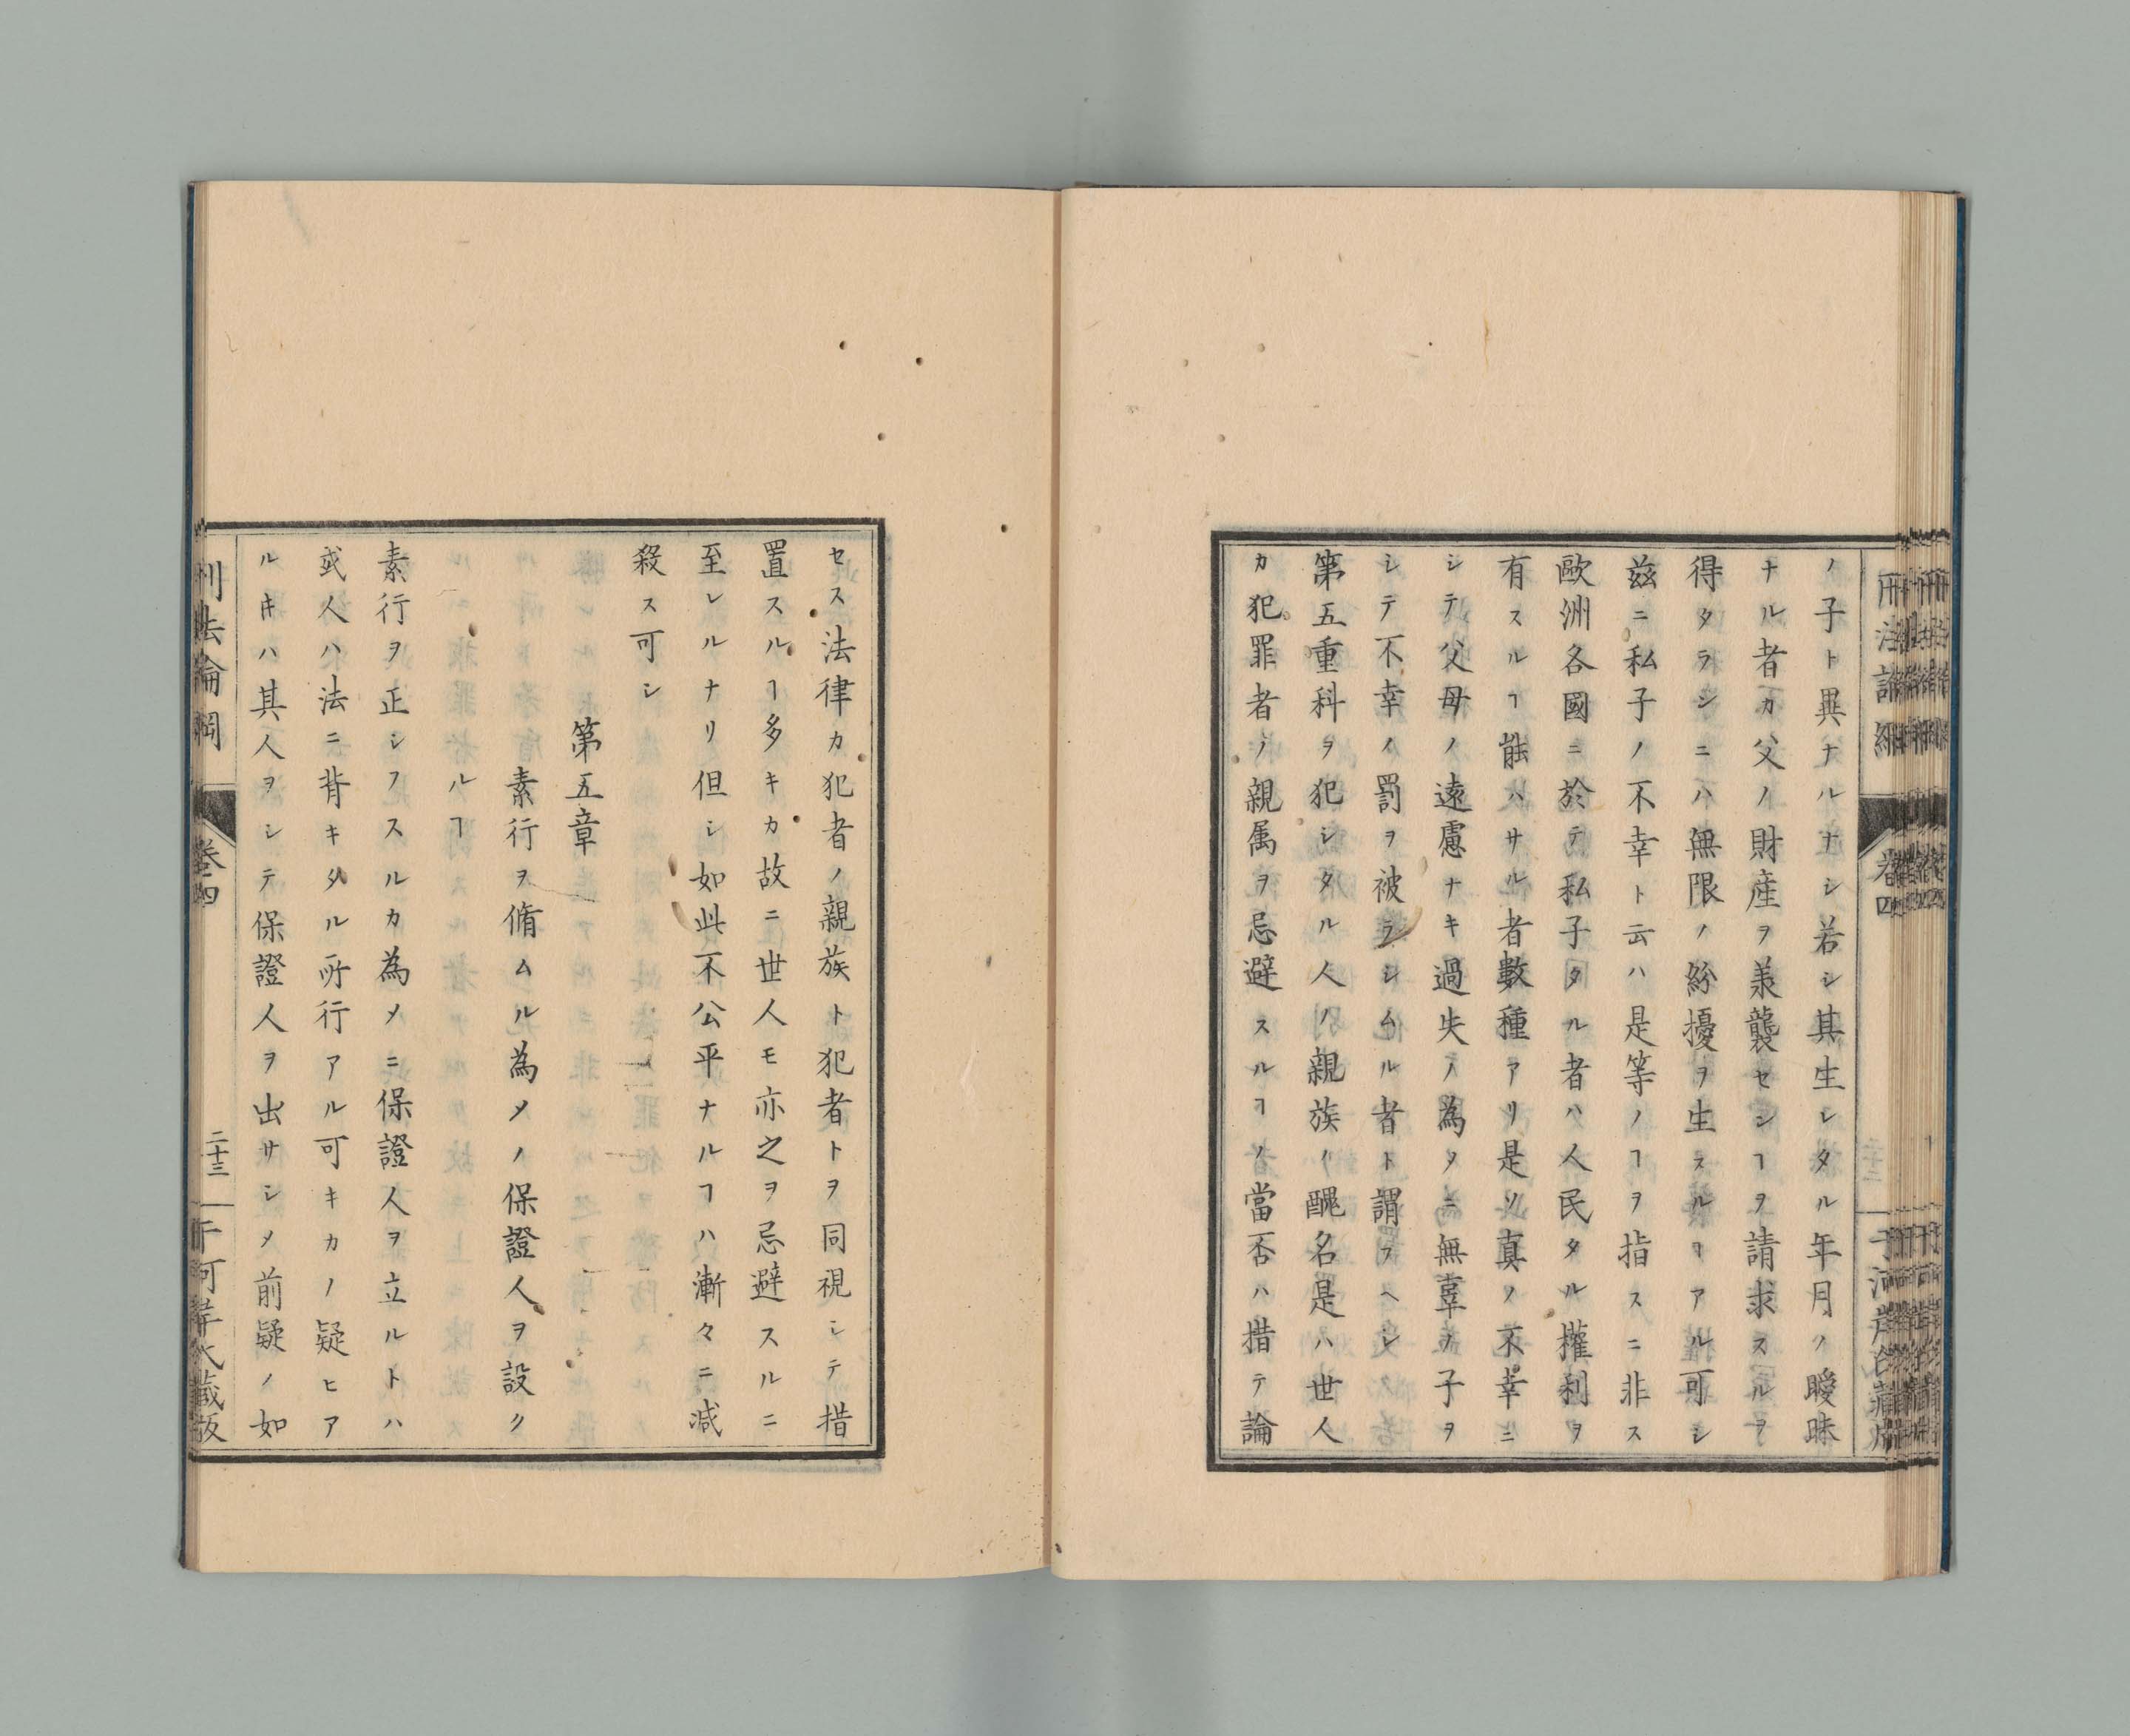 ノ子ト異ナルナシ若シ其生レタル年月ノ曖昧
ナル者カ父ノ財産ヲ羕襲セシヿヲ請求スルヲ
得タラシニハ無限ノ紛擾ヲ生スルヿアル可シ
茲ニ私子ノ不幸ト云ハ是等ノヿヲ指スニ非ス
歐洲各國ニ於テ私子タル者ハ人民タル權利ヲ
有スルヿ能ハサル者數種アリ是レ真ノ不幸ニ
シテ父母ノ遠慮ナキ過失ノ為メニ無辜ノ子ヲ
シテ不幸ノ罰ヲ被ラシムル者ト謂フヘシ
第五重科ヲ犯シタル人ノ親族ノ醜名是ハ世人
カ犯罪者ノ親属ヲ忌避スルヿノ當否ハ措テ論
セス法律カ犯者ノ親族ト犯者トヲ同視シテ措
置スルヿ多キカ故ニ世人モ亦之ヲ忌避スルニ
至レルナリ但シ如此不公平ナルヿハ漸々ニ減
殺ス可シ
第五章
素行ヲ脩ムル為メノ保證人ヲ設ク
ルヿ
素行ヲ正シフスルカ為メニ保證人ヲ立ルトハ
或人ハ法ニ背キタル所行アル可キカノ疑ヒア
ルキハ其人ヲシテ保證人ヲ出サシメ前疑ノ如
刑法論綱
卷四
二十三
于河岸氏藏版